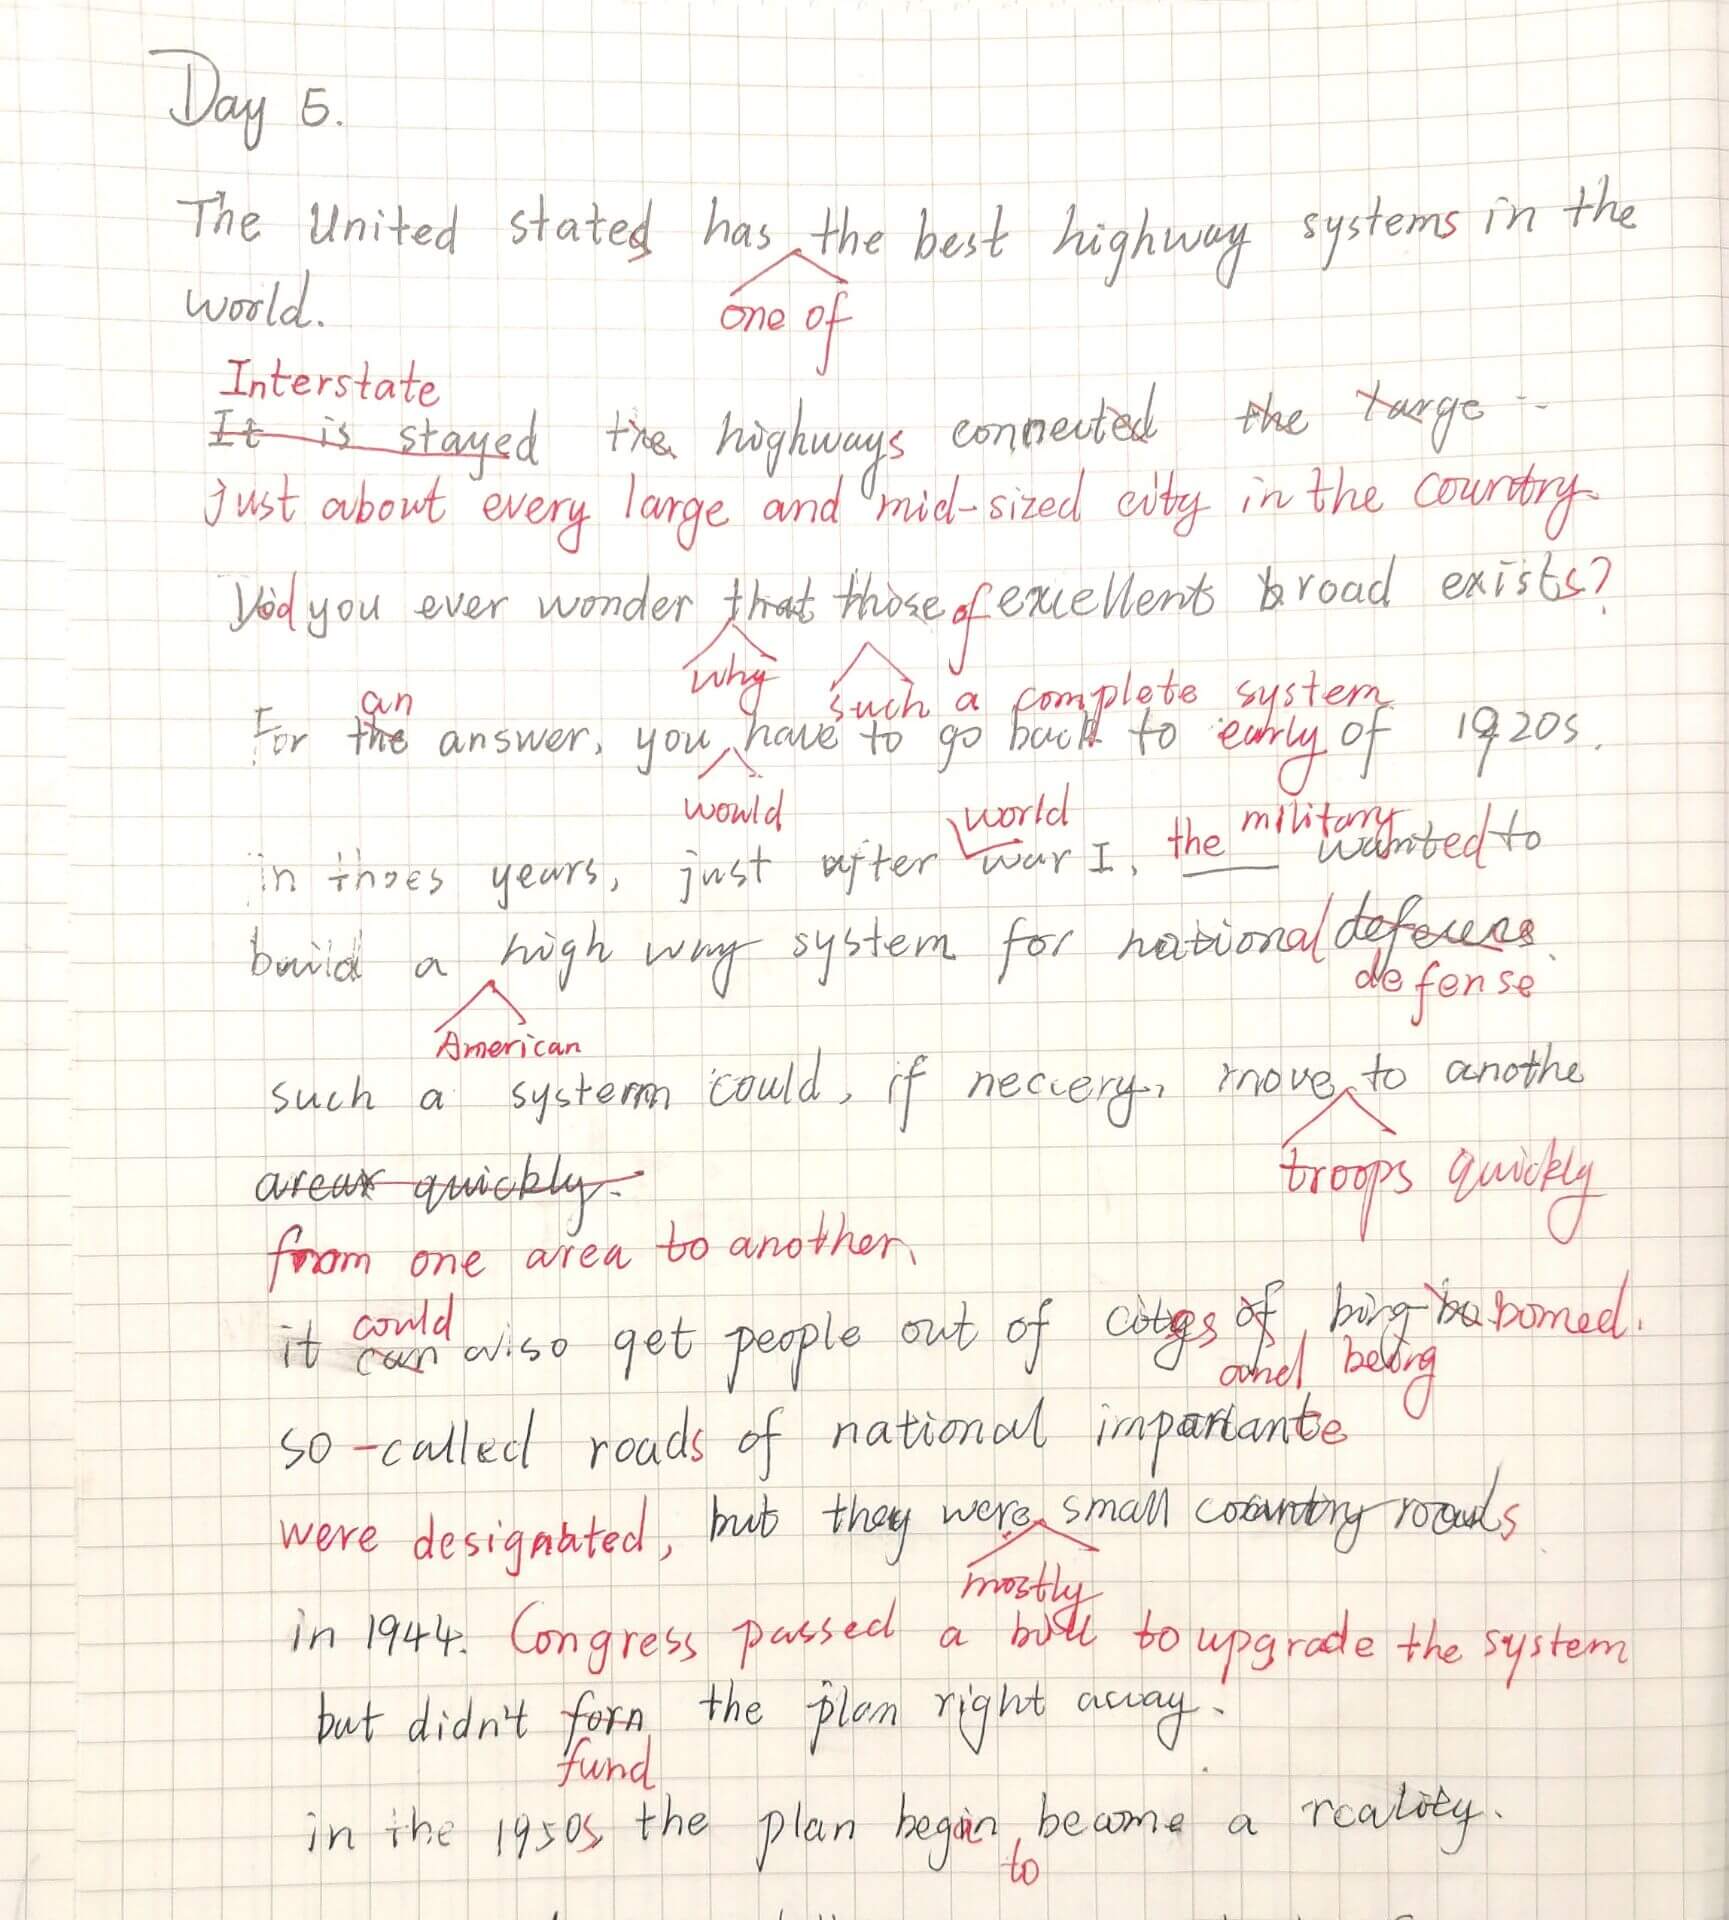 Day 5.
The United states has the best highway systems in the
world. one of
Interstate
It is stayed the highways connected the large
just about every large and mid-sized city in the country.
Did you ever wonder that those of excellent broad exists?
why such a complete system
an
For the answer, you have to go back to early of 1920s.
would
world the military
in thoes years, just after war I, wanted to
build a high way system for national
defense
American
such a system could, if neccery, move to anothe
troops quickly
areas quickly.
from one area to another.
could
it can also get people out of of bomed.
and being
so-called roads of national importante
were designated, but they were small country roads
mostly
in 1944. Congress passed a bill to upgrade the system
but didn't forn the plan right away.
fund
in the 1950s the plan begin become a reality.
to